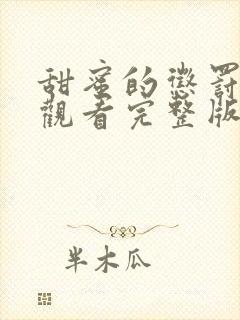 甜蜜的懲罰
觀看完整版
半木瓜